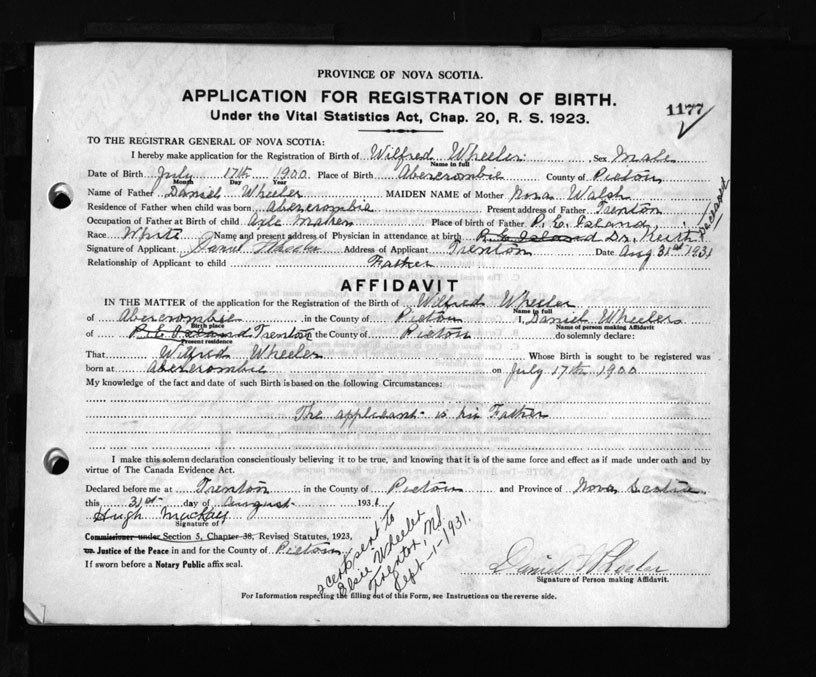 PROVINCE OF NOVA SCOTIA.
APPLICATION FOR REGISTRATION OF BIRTH.
1177
Under the Vital Statistics Act, Chap. 20, R. S. 1923.
TO THE REGISTRAR GENERAL OF NOVA SCOTIA:
I hereby make application for the Registration of Birth of Wilfred Wheeler Sex Male
Name in full
Date of Birth July 17th 1900 Place of Birth Abercrombie County of Pictou
Month Day Year
Name of Father Daniel Wheeler MAIDEN NAME of Mother Nora Walsh
Residence of Father when child was born Abercrombie Present address of Father Trenton
Occupation of Father at Birth of child Axle Maker Place of birth of Father P. E. Island
Race White Name and present address of Physician in attendance at birth P. E. Island Dr. Keith Deceased
Signature of Applicant Daniel Wheeler Address of Applicant Trenton Date Aug 31st 1931
Relationship of Applicant to child Father
AFFIDAVIT
IN THE MATTER of the application for the Registration of the Birth of Wilfred Wheeler
Name in full
of Abercrombie in the County of Pictou I, Daniel Wheeler
Birth place Name of person making Affidavit
of P. E. Island Trenton the County of Pictou do solemnly declare:
Present residence
That Wilfred Wheeler Whose Birth is sought to be registered was
born at Abercrombie on July 17th 1900
My knowledge of the fact and date of such Birth is based on the following Circumstances:
The applicant is his Father
I make this solemn declaration conscientiously believing it to be true, and knowing that it is of the same force and effect as if made under oath and by
virtue of The Canada Evidence Act.
Declared before me at Trenton in the County of Pictou and Province of Nova Scotia
this 31st day of August 1931
Hugh MacKay
Signature of
Commissioner under Section 3, Chapter 38, Revised Statutes, 1923,
Justice of the Peace in and for the County of Pictou
If sworn before a Notary Public affix seal.
sent to
Elsie Wheeler
Trenton, NS
Sept-1-1931.
Daniel Wheeler
Signature of Person making Affidavit.
For Information respecting the filling out of this Form, see Instructions on the reverse side.